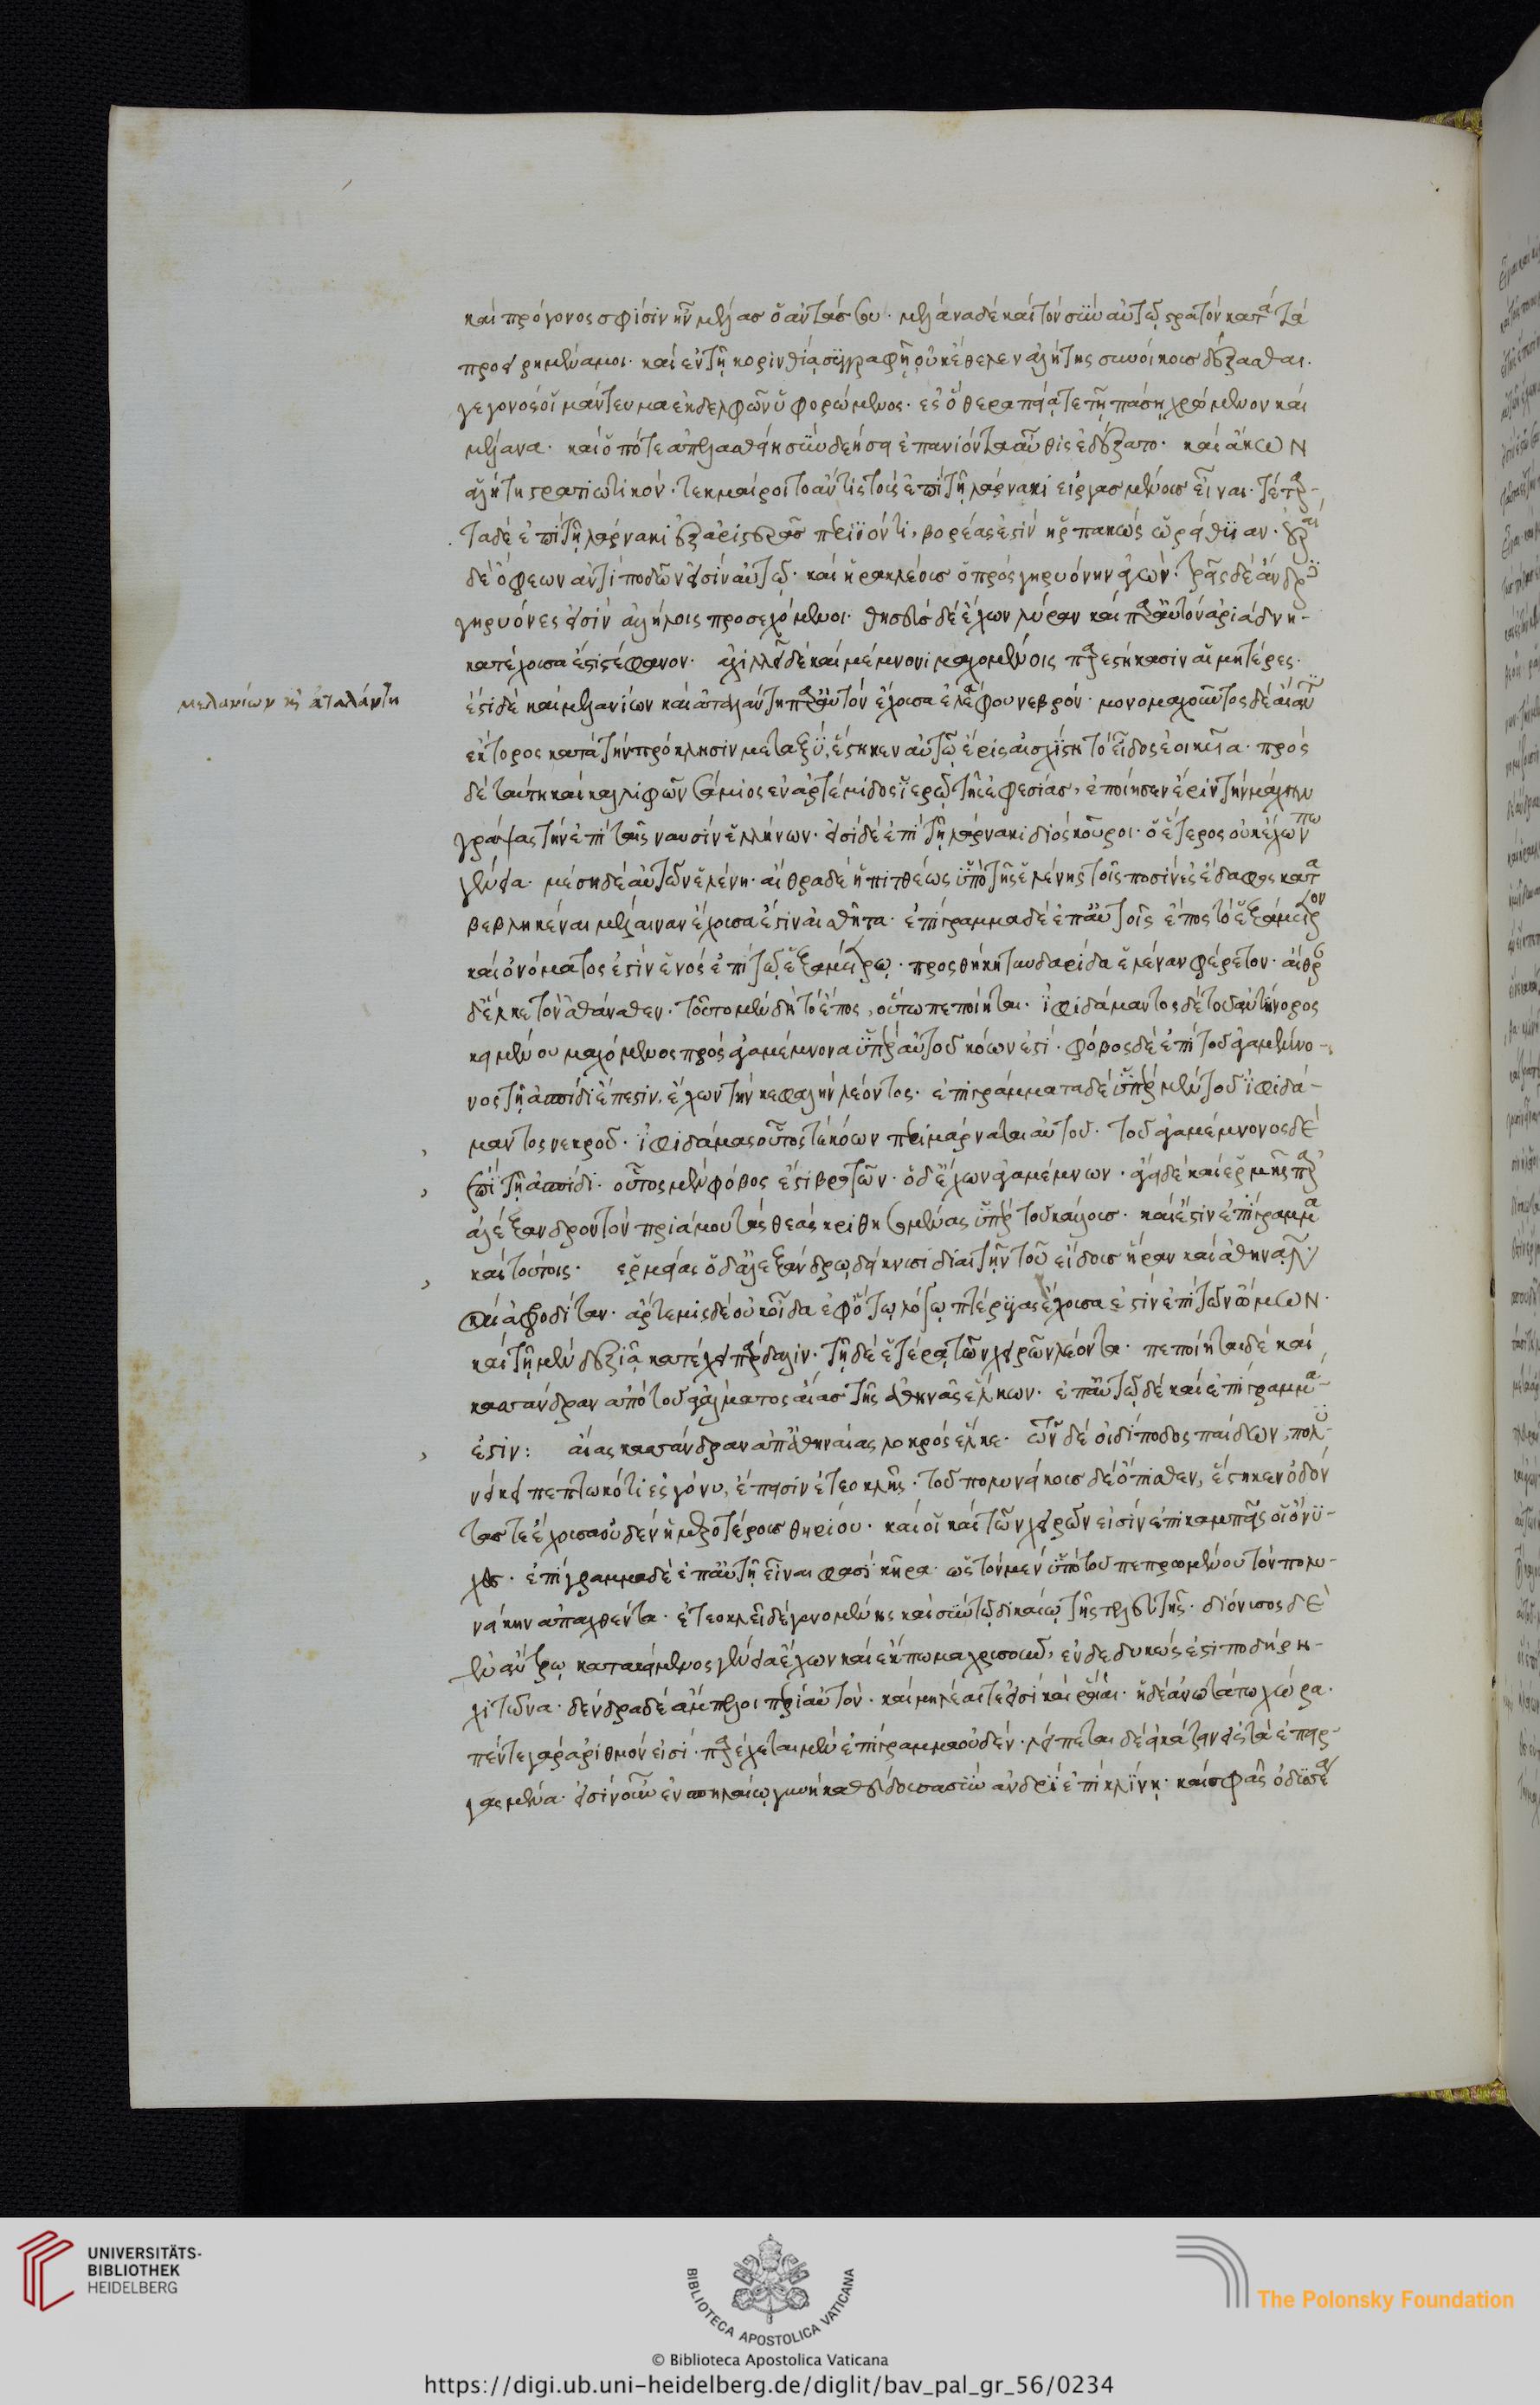 καὶ πρόγονος σφίσιν ἦν μέλας ὁ ἀντάσου· μέλανα δὲ καὶ τὸν σὺν αὐτῷ στρατὸν κατὰ τὰ
προειρημένα μοι· καὶ ἐν τῇ κορινθίᾳ συγγραφῇ οὐκ ἔθελεν ἀλήτης συνοίκους δέξασθαι.
γεγονός οἱ μάντευμα ἐκ δελφῶν ὑφορώμενος· ἐς ὃ θεραπείᾳ τε τῇ πάσῃ χρώμενον καὶ
μέλανα· καὶ ὁπότε ἀπελασθείη σὺν δεήσει ἐπανιόντα αὖθις ἐδέξατο· καὶ ἄκων
ἀλήτης στρατιωτικόν· τεκμαίροιτο ἄν τις τοὺς ἐπὶ τῇ λάρνακι εἰργασμένους εἶναι· τέταρ-
τα δὲ ἐπὶ τῇ λάρνακι ἐξ ἀριστερᾶς περιϊόντι, βορέας ἐστὶν ἡρπακὼς ὠρείθυιαν· οὐραὶ
δὲ ὄφεων ἀντὶ ποδῶν εἰσὶν αὐτῷ· καὶ ἡρακλέους ὁ πρὸς γηρυόνην ἀγών· τρεῖς δὲ ἄνδρες
γηρυόνες εἰσὶν ἀλλήλοις προσεχόμενοι· θησεὺς δὲ ἔχων λύραν καὶ παρ' αὐτὸν ἀριάδνη
κατέχουσα ἐστι στέφανον· ἀχιλλεῖ δὲ καὶ μέμνονι μαχομένοις παρεστήκασιν αἱ μητέρες·
μελανίων κ(αὶ) ἀταλάντη
ἔστι δὲ καὶ μελανίων καὶ ἀταλάντη παρ' αὐτὸν ἔχουσα ἐλάφου νεβρόν· μονομαχοῦντος δὲ αἴαντι
ἕκτορος κατὰ τὴν πρόκλησιν μεταξὺ, ἕστηκεν αὐτῶν ἔρις αἰσχίστη τὸ εἶδος ἐοικυῖα· πρὸς
δὲ ταύτην καὶ καλλιφῶν σάμιος ἐν ἀρτέμιδος ἱερῷ τῆς ἐφεσίας, ἐποίησεν ἔριν τὴν μάχην
γράψας τὴν ἐπὶ ταῖς ναυσὶν ἑλλήνων· εἰσὶ δὲ ἐπὶ τῇ λάρνακι διόσκουροι· ὁ ἕτερος οὐκ ἔχων πω
γένεια· μέση δὲ αὐτῶν ἑλένη· αἴθρα δὲ ἡ πιτθέως ὑπὸ τῆς ἑλένης τοῖς ποσὶν ἐς ἔδαφος κατα
βεβλημέναι μέλαιναν ἔχουσα ἐστὶν αἰσθῆτα· ἐπίγραμμα δὲ ἐπ' αὐτοῖς ἔπος τὸ ἑξάμετρον
καὶ ὀνόματος ἐστὶν ἑνὸς ἐπὶ τῷ ἑξαμέτρῳ· προσθήκη τυνδαρίδα ἑλέναν φέρετον· αἴθραν
δ' ἕλκετον ἀθάναθεν· τοῦτο μὲν δὴ τὸ ἔπος, οὕτω πεποίηται· ἰφιδάμαντος δὲ τοῦ ἀντήνορος
κειμένου μαχόμενος πρὸς ἀγαμέμνονα ὑπὲρ αὐτοῦ κόων ἐστί· φόβος δὲ ἐπὶ τοῦ ἀγαμέμνο-
νος τῇ ἀσπίδι ἔπεστιν, ἔχων τὴν κεφαλὴν λέοντος· ἐπιγράμματα δὲ ὑπὲρ μὲν τοῦ ἰφιδά-
μαντος νεκροῦ· ἰφιδάμας οὗτος τε κόων περιμάρναται αὐτοῦ· τοῦ ἀγαμέμνονος δὲ
ἐπὶ τῇ ἀσπίδι· οὗτος μὲν φόβος ἐστὶ βροτῶν· ὁ δ' ἔχων ἀγαμέμνων· ἄγει δὲ καὶ ἑρμῆς παρ'
ἀλέξανδρον τὸν πριάμου τὰς θεὰς κριθησομένας ὑπὲρ τοῦ κάλλους· καὶ ἔστιν ἐπίγραμμα
καὶ τούτοις· ἑρμείας ὅδ' ἀλεξάνδρῳ δείκνυσι διαιτῆν τοῦ εἴδους ἥραν καὶ ἀθηνᾶν
καὶ ἀφροδίταν· ἄρτεμις δὲ οὐκ οἶδα ἐφ' ὅτῳ λόγῳ πτέρυγας ἔχουσα ἐστὶν ἐπὶ τῶν ὤμων·
καὶ τῇ μὲν δεξιᾷ κατέχει πάρδαλιν· τῇ δὲ ἑτέρᾳ τῶν χειρῶν λέοντα· πεποίηται δὲ καὶ
κασσάνδραν ἀπὸ τοῦ ἀγάλματος αἴας τῆς ἀθηνᾶς ἕλκων· ἐπ' αὐτῷ δὲ καὶ ἐπίγραμμά
ἐστιν: αἴας κασσάνδραν ἀπ' ἀθηναίας λοκρὸς ἕλκε· τῶν δὲ οἰδίποδος παίδων, πολυ-
νείκει πεπτωκότι ἐς γόνυ, ἔπεισιν ἐτεοκλῆς· τοῦ πολυνείκους δὲ ὄπισθεν, ἕστηκεν ὀδόν
τας τε ἔχουσα οὐδὲν ἡμερωτέρους θηρίου· καὶ οἱ καὶ τῶν χειρῶν εἰσὶν ἐπικαμπεῖς οἱ ὄνυ-
χες· ἐπίγραμμα δὲ ἐπ' αὐτῇ εἶναι φασὶ κῆρα· ὡς τὸν μὲν ὑπὸ τοῦ πεπρωμένου τὸν πολυ-
νείκην ἀπαχθέντα· ἐτεοκλεῖ δὲ γενομένης καὶ σὺν τῷ δικαίῳ τῆς τελευτῆς· διόνυσος δὲ
ἐν ἄντρῳ κατακείμενος γένεια ἔχων καὶ ἔκπωμα χρυσοῦν, ἐνδεδυκώς ἐστι ποδήρη
χιτῶνα· δένδρα δὲ ἄμπελοι περὶ αὐτὸν· καὶ μηλέαι τε εἰσὶ καὶ ῥοιαί· ἡ δὲ ἀνωτάτω χώρα·
πέντε γὰρ ἀριθμόν εἰσί· παρέχεται μὲν ἐπίγραμμα οὐδέν· λείπεται δὲ εἰκάζειν ἐς τὰ ἐπειρ-
γασμένα· εἰσὶν οὖν ἐν σπηλαίῳ γυνὴ καθεύδουσα σὺν ἀνδρὶ ἐπὶ κλίνῃ· καὶ σφᾶς ὀδυσσέα
UNIVERSITÄTS-
BIBLIOTHEK
HEIDELBERG
BIBLIOTECA APOSTOLICA VATICANA
The Polonsky Foundation
© Biblioteca Apostolica Vaticana
https://digi.ub.uni-heidelberg.de/diglit/bav_pal_gr_56/0234